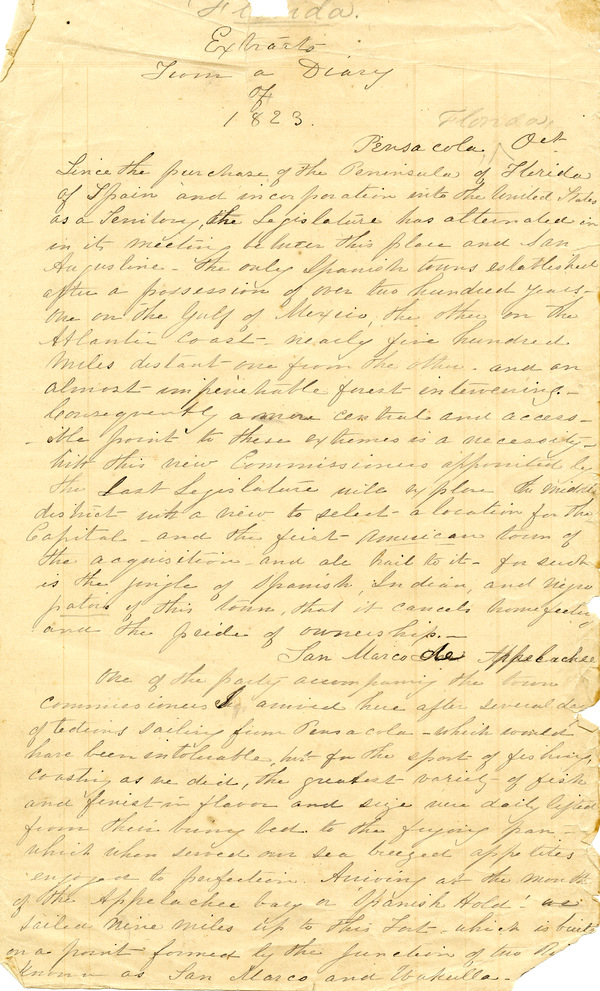 Florida.
Extracts
From a Diary
of
1823.
Florida,
Pensacola, Oct
Since the purchase of the Peninsula of Florida
of Spain and incorporation into the United States
as a Territory, the Legislature has alternated in
in its meeting between this place and San
Augustine - the only Spanish towns established
after a possession of over two hundred years -
one on the Gulf of Mexico, the other on the
Atlantic coast - nearly five hundred
miles distant one from the other - and an
almost impenetrable forest intervening. -
Consequently a more central and access-
-ible point to these extremes is a necessity -
with this view Commissioners appointed by
the Last Legislature will explore the middle
district with a view to select a location for the
Capital - and the first American town of
the acquisition - and all hail to it - for such
is the jingle of Spanish, Indian, and negro
patois of this town, that it cancels home feeling
and the pride of ownership. -
San Marco de Appelachee
One of the party accompanying the town
commissioners I arrived here after several day
of tedious sailing from Pensacola - which would
have been intolerable, but for the sport of fishing,
coasting as we did, the greatest variety of fish
and finest in flavor and size were daily lifted
from their briny bed to the frying pan -
which when served our sea breezed appetites
enjoyed to perfection. Arriving at the mouth
of the Appelachee bay or 'Spanish Hold' we
sailed nine miles up to this Fort - which is built
on a point formed by the junction of two
known as San Marco and Wakulla -